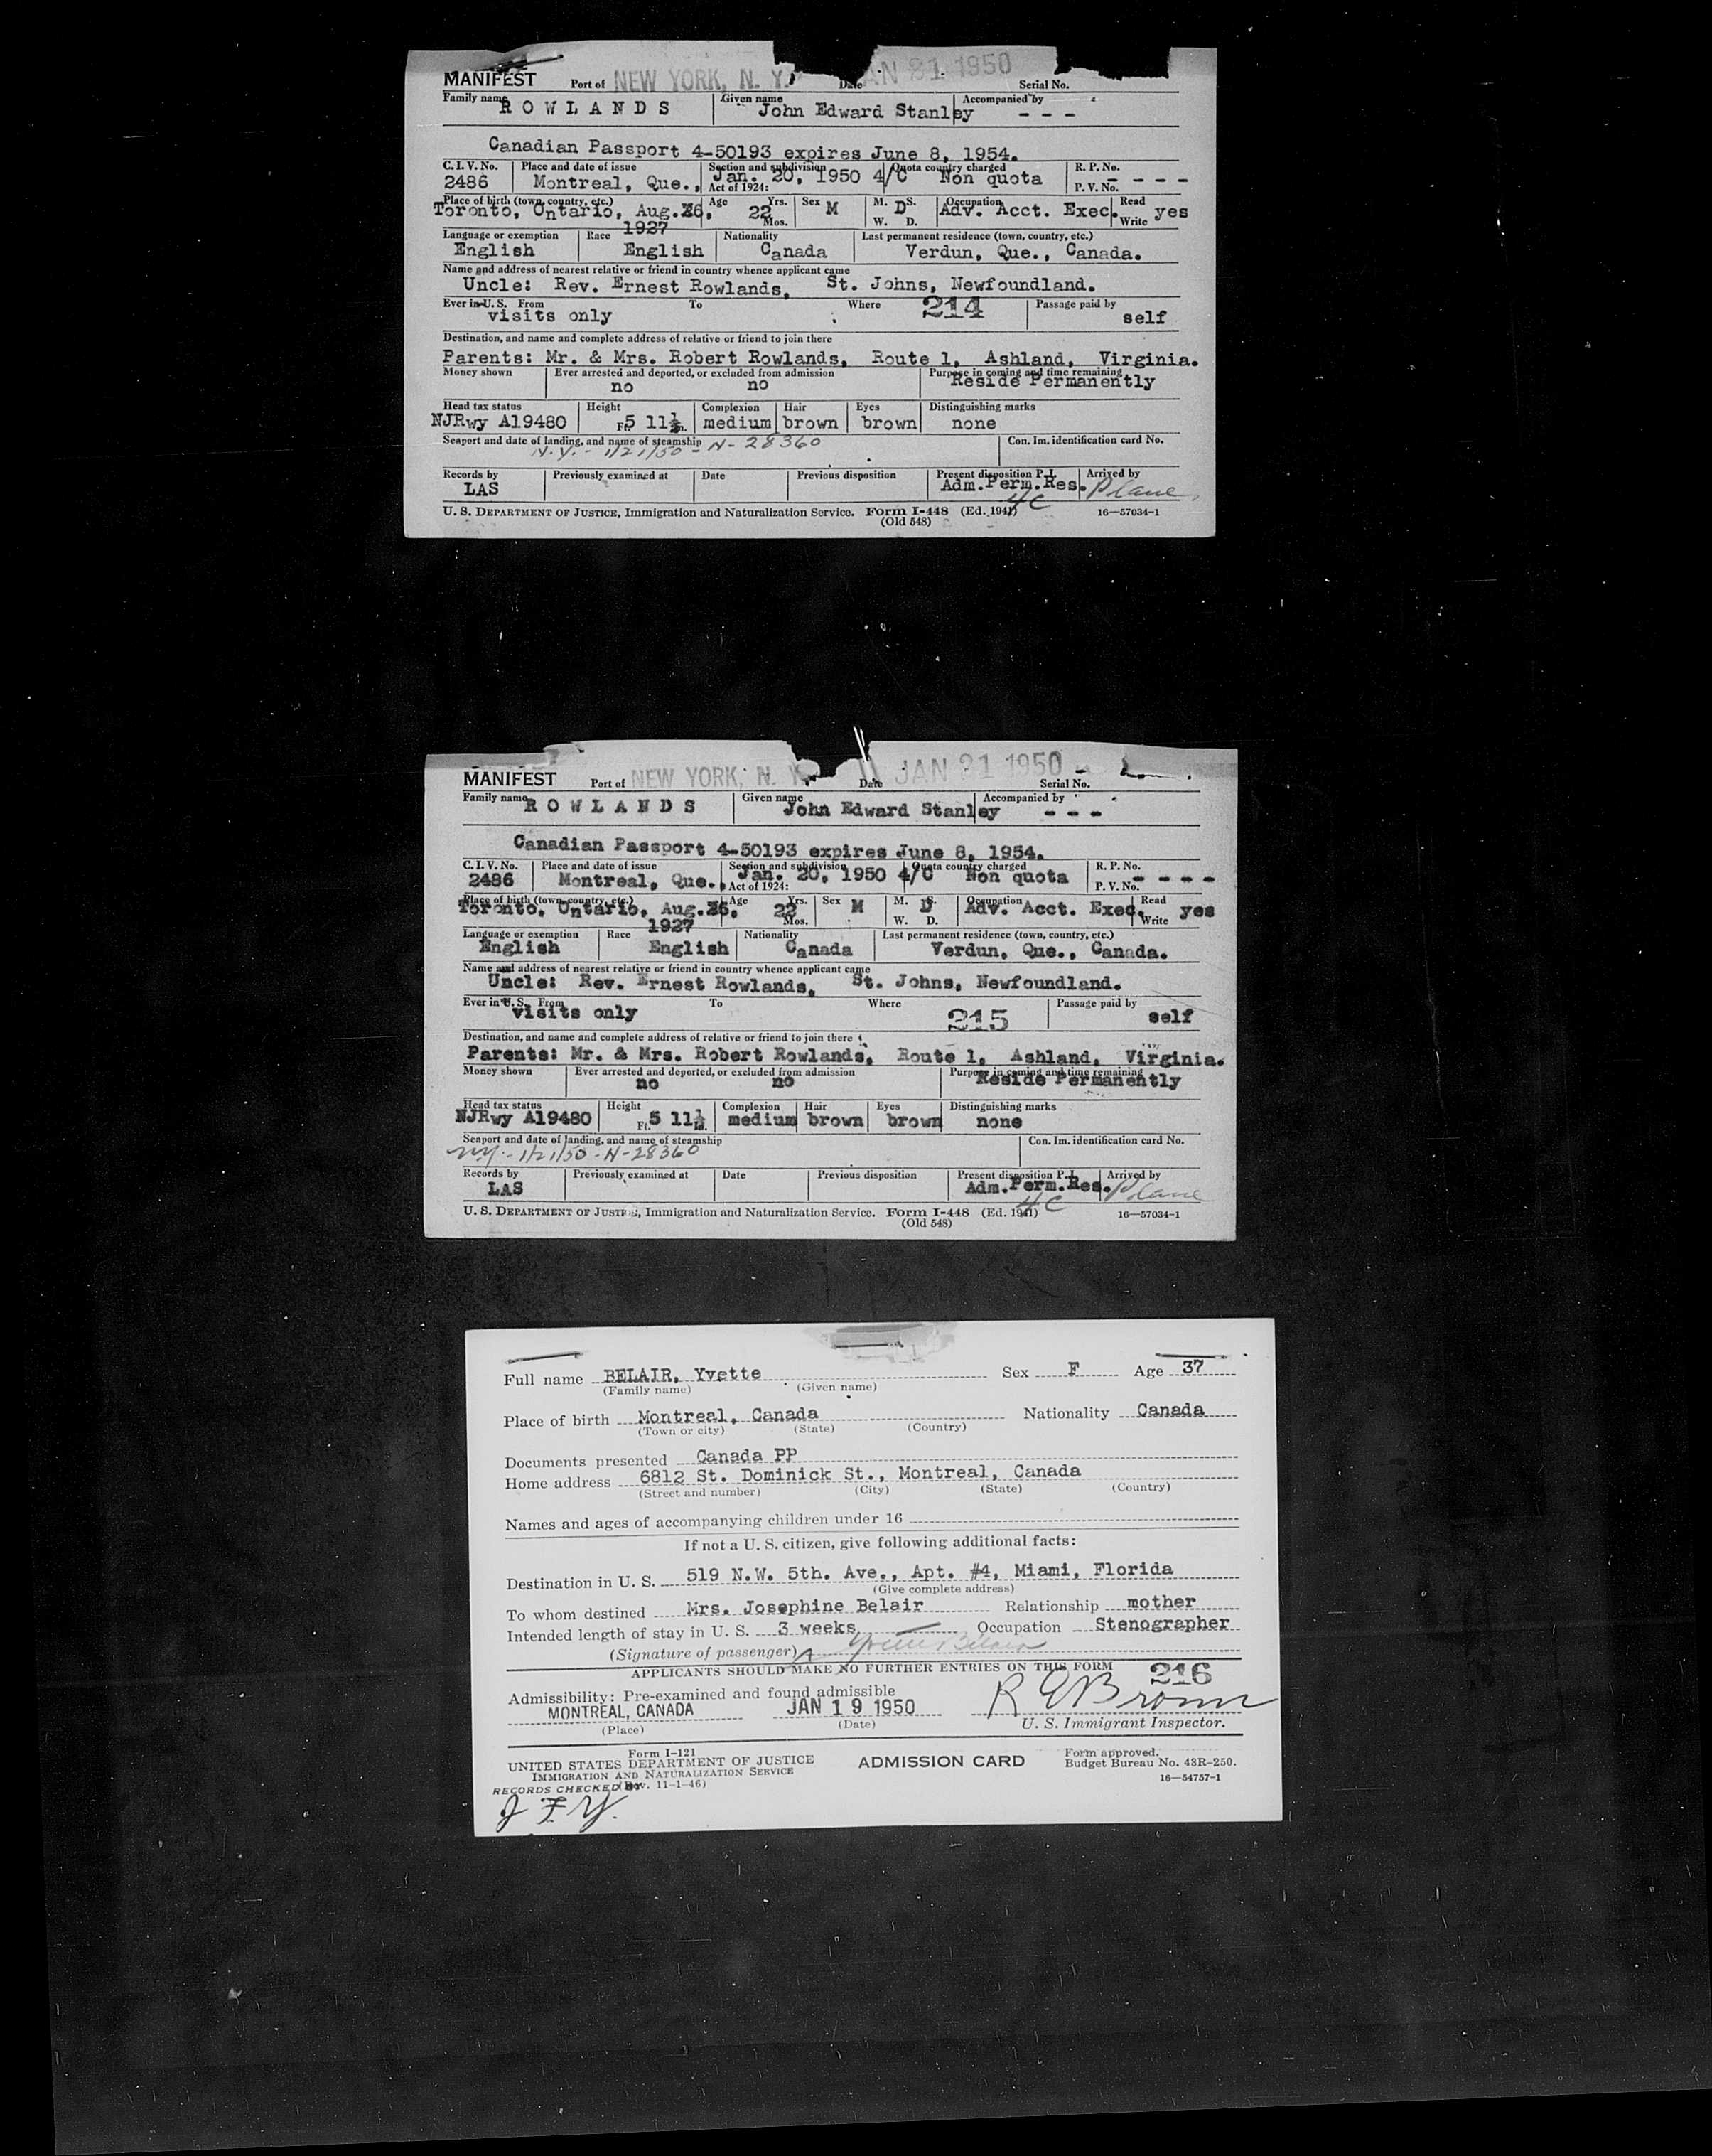 MANIFEST Port of NEW YORK, N. Y. Date JAN 21 1950 Serial No.
Family name ROWLANDS Given name John Edward Stanley Accompanied by - - -
Canadian Passport 4-50193 expires June 8, 1954.
C. I. V. No. Place and date of issue Section and subdivision Quota country charged R. P. No.
2486 Montreal, Que., Jan. 20, 1950 4/C Non quota - - - -
Act of 1924: P. V. No.
Place of birth (town, country, etc.) Age Yrs. Sex M M. S. Occupation Read
Toronto, Ontario, Aug. 26, 22 D Adv. Acct. Exec. yes
1927 Mos. W. D. Write
Language or exemption Race Nationality Last permanent residence (town, country, etc.)
English English Canada Verdun, Que., Canada.
Name and address of nearest relative or friend in country whence applicant came
Uncle: Rev. Ernest Rowlands, St. Johns, Newfoundland.
Ever in U. S. From To Where 214 Passage paid by
visits only self
Destination, and name and complete address of relative or friend to join there
Parents: Mr. & Mrs. Robert Rowlands, Route 1, Ashland, Virginia.
Money shown Ever arrested and deported, or excluded from admission Purpose in coming and time remaining
no no Reside Permanently
Head tax status Height Complexion Hair Eyes Distinguishing marks
NJRwy A19480 Ft. 5 11½ in. medium brown brown none
Seaport and date of landing, and name of steamship Con. Im. identification card No.
N.Y. - 1/21/50 - N-28360
Records by Previously examined at Date Previous disposition Present disposition P.I. Arrived by
LAS Adm. Perm. Res. Plane
4C
U. S. DEPARTMENT OF JUSTICE, Immigration and Naturalization Service. Form I-448 (Ed. 1941) 16—57034-1
(Old 548)
MANIFEST Port of NEW YORK, N. Y. Date JAN 21 1950 Serial No.
Family name ROWLANDS Given name John Edward Stanley Accompanied by - - -
Canadian Passport 4-50193 expires June 8, 1954.
C. I. V. No. Place and date of issue Section and subdivision Quota country charged R. P. No.
2486 Montreal, Que., Jan. 20, 1950 4/C Non quota - - - -
Act of 1924: P. V. No.
Place of birth (town, country, etc.) Age Yrs. Sex M M. S. Occupation Read
Toronto, Ontario, Aug. 26, 22 D Adv. Acct. Exec. yes
1927 Mos. W. D. Write
Language or exemption Race Nationality Last permanent residence (town, country, etc.)
English English Canada Verdun, Que., Canada.
Name and address of nearest relative or friend in country whence applicant came
Uncle: Rev. Ernest Rowlands, St. Johns, Newfoundland.
Ever in U. S. From To Where 215 Passage paid by
visits only self
Destination, and name and complete address of relative or friend to join there
Parents: Mr. & Mrs. Robert Rowlands, Route 1, Ashland, Virginia.
Money shown Ever arrested and deported, or excluded from admission Purpose in coming and time remaining
no no Reside Permanently
Head tax status Height Complexion Hair Eyes Distinguishing marks
NJRwy A19480 Ft. 5 11½ in. medium brown brown none
Seaport and date of landing, and name of steamship Con. Im. identification card No.
N.Y. - 1/21/50 - N-28360
Records by Previously examined at Date Previous disposition Present disposition P.I. Arrived by
LAS Adm. Perm. Res. Plane
4C
U. S. DEPARTMENT OF JUSTICE, Immigration and Naturalization Service. Form I-448 (Ed. 1941) 16—57034-1
(Old 548)
Full name BELAIR, Yvette Sex F Age 37
(Family name) (Given name)
Place of birth Montreal, Canada Nationality Canada
(Town or city) (State) (Country)
Documents presented Canada PP
Home address 6812 St. Dominick St., Montreal, Canada
(Street and number) (City) (State) (Country)
Names and ages of accompanying children under 16
If not a U. S. citizen, give following additional facts:
Destination in U. S. 519 N.W. 5th. Ave., Apt. #4, Miami, Florida
(Give complete address)
To whom destined Mrs. Josephine Belair Relationship mother
Intended length of stay in U. S. 3 weeks Occupation Stenographer
(Signature of passenger) Yvette Belair
APPLICANTS SHOULD MAKE NO FURTHER ENTRIES ON THIS FORM 216
Admissibility: Pre-examined and found admissible
MONTREAL, CANADA JAN 19 1950 R E Brown
(Place) (Date) U. S. Immigrant Inspector.
Form I-121
UNITED STATES DEPARTMENT OF JUSTICE ADMISSION CARD Form approved.
IMMIGRATION AND NATURALIZATION SERVICE Budget Bureau No. 43R-250.
RECORDS CHECKED (Rev. 11-1-46) 16—54757-1
J F Y.